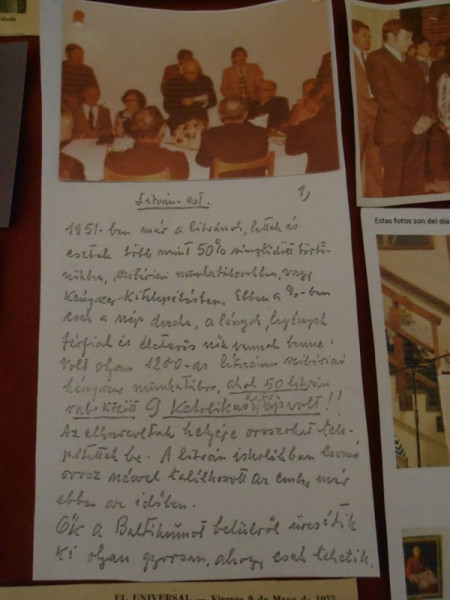 István-est.
1,
1951-ben már a litvánok, lettek és
esztek több mint 50%
munkatáborokban, vagy
Kényszer-Kitelepítésben. Ebben a %-ben
csak a nép dercka, a lányok, legények
férfiak és életerős nők vannak benne!
Volt olyan 1200-as litvániai szibériai
kényszer munkatábor, ahol 50 litván
rab között 9 Katolikus pap volt!!
Az elhurcoltak helyére oroszokat tele-
pítettek be. A litván iskolákban
orosz névvel találkozott az ember már
ebben az időben.
Ők a Baltikumot belülről üresítik
ki olyan gyorsan, ahogy csak tehetik.
Estas fotos son del día
EL UNIVERSAL — Viernes 9 de Mayo de